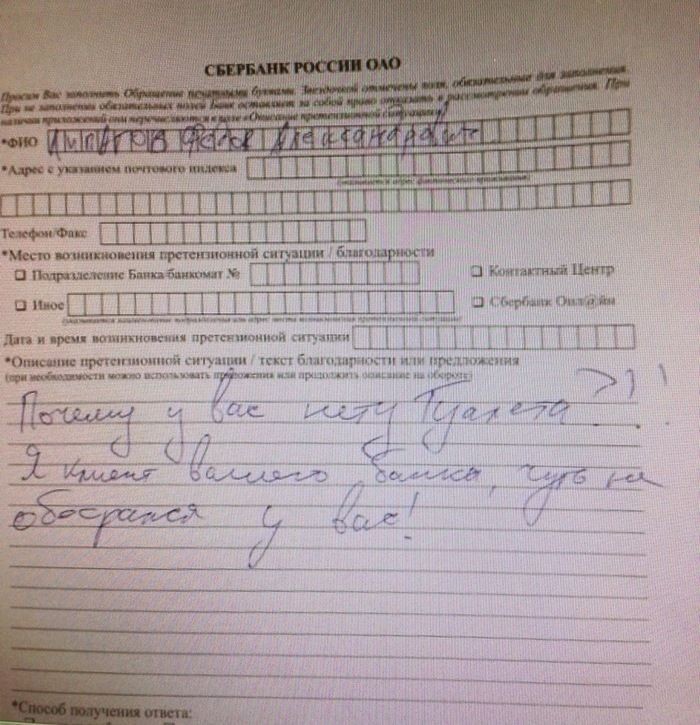 СБЕРБАНК РОССИИ ОАО
Просим Вас заполнить Обращение печатными буквами. Звездочкой отмечены поля, обязательные для заполнения.
При не заполнении обязательных полей Банк оставляет за собой право отказать в рассмотрении обращения. При
наличии приложений они перечисляются в поле «Описание претензионной ситуации»
*ФИО
*Адрес с указанием почтового индекса
Телефон/Факс
*Место возникновения претензионной ситуации / благодарности
Подразделение Банка/банкомат № Контактный Центр
Иное Сбербанк Онл@йн
Дата и время возникновения претензионной ситуации
*Описание претензионной ситуации / текст благодарности или предложения
(при необходимости можно использовать приложения или продолжить описание на обороте)
Почему у вас нету Туалета ?!!
Я клиент вашего банка, чуть не
обосрался у вас!
*Способ получения ответа: